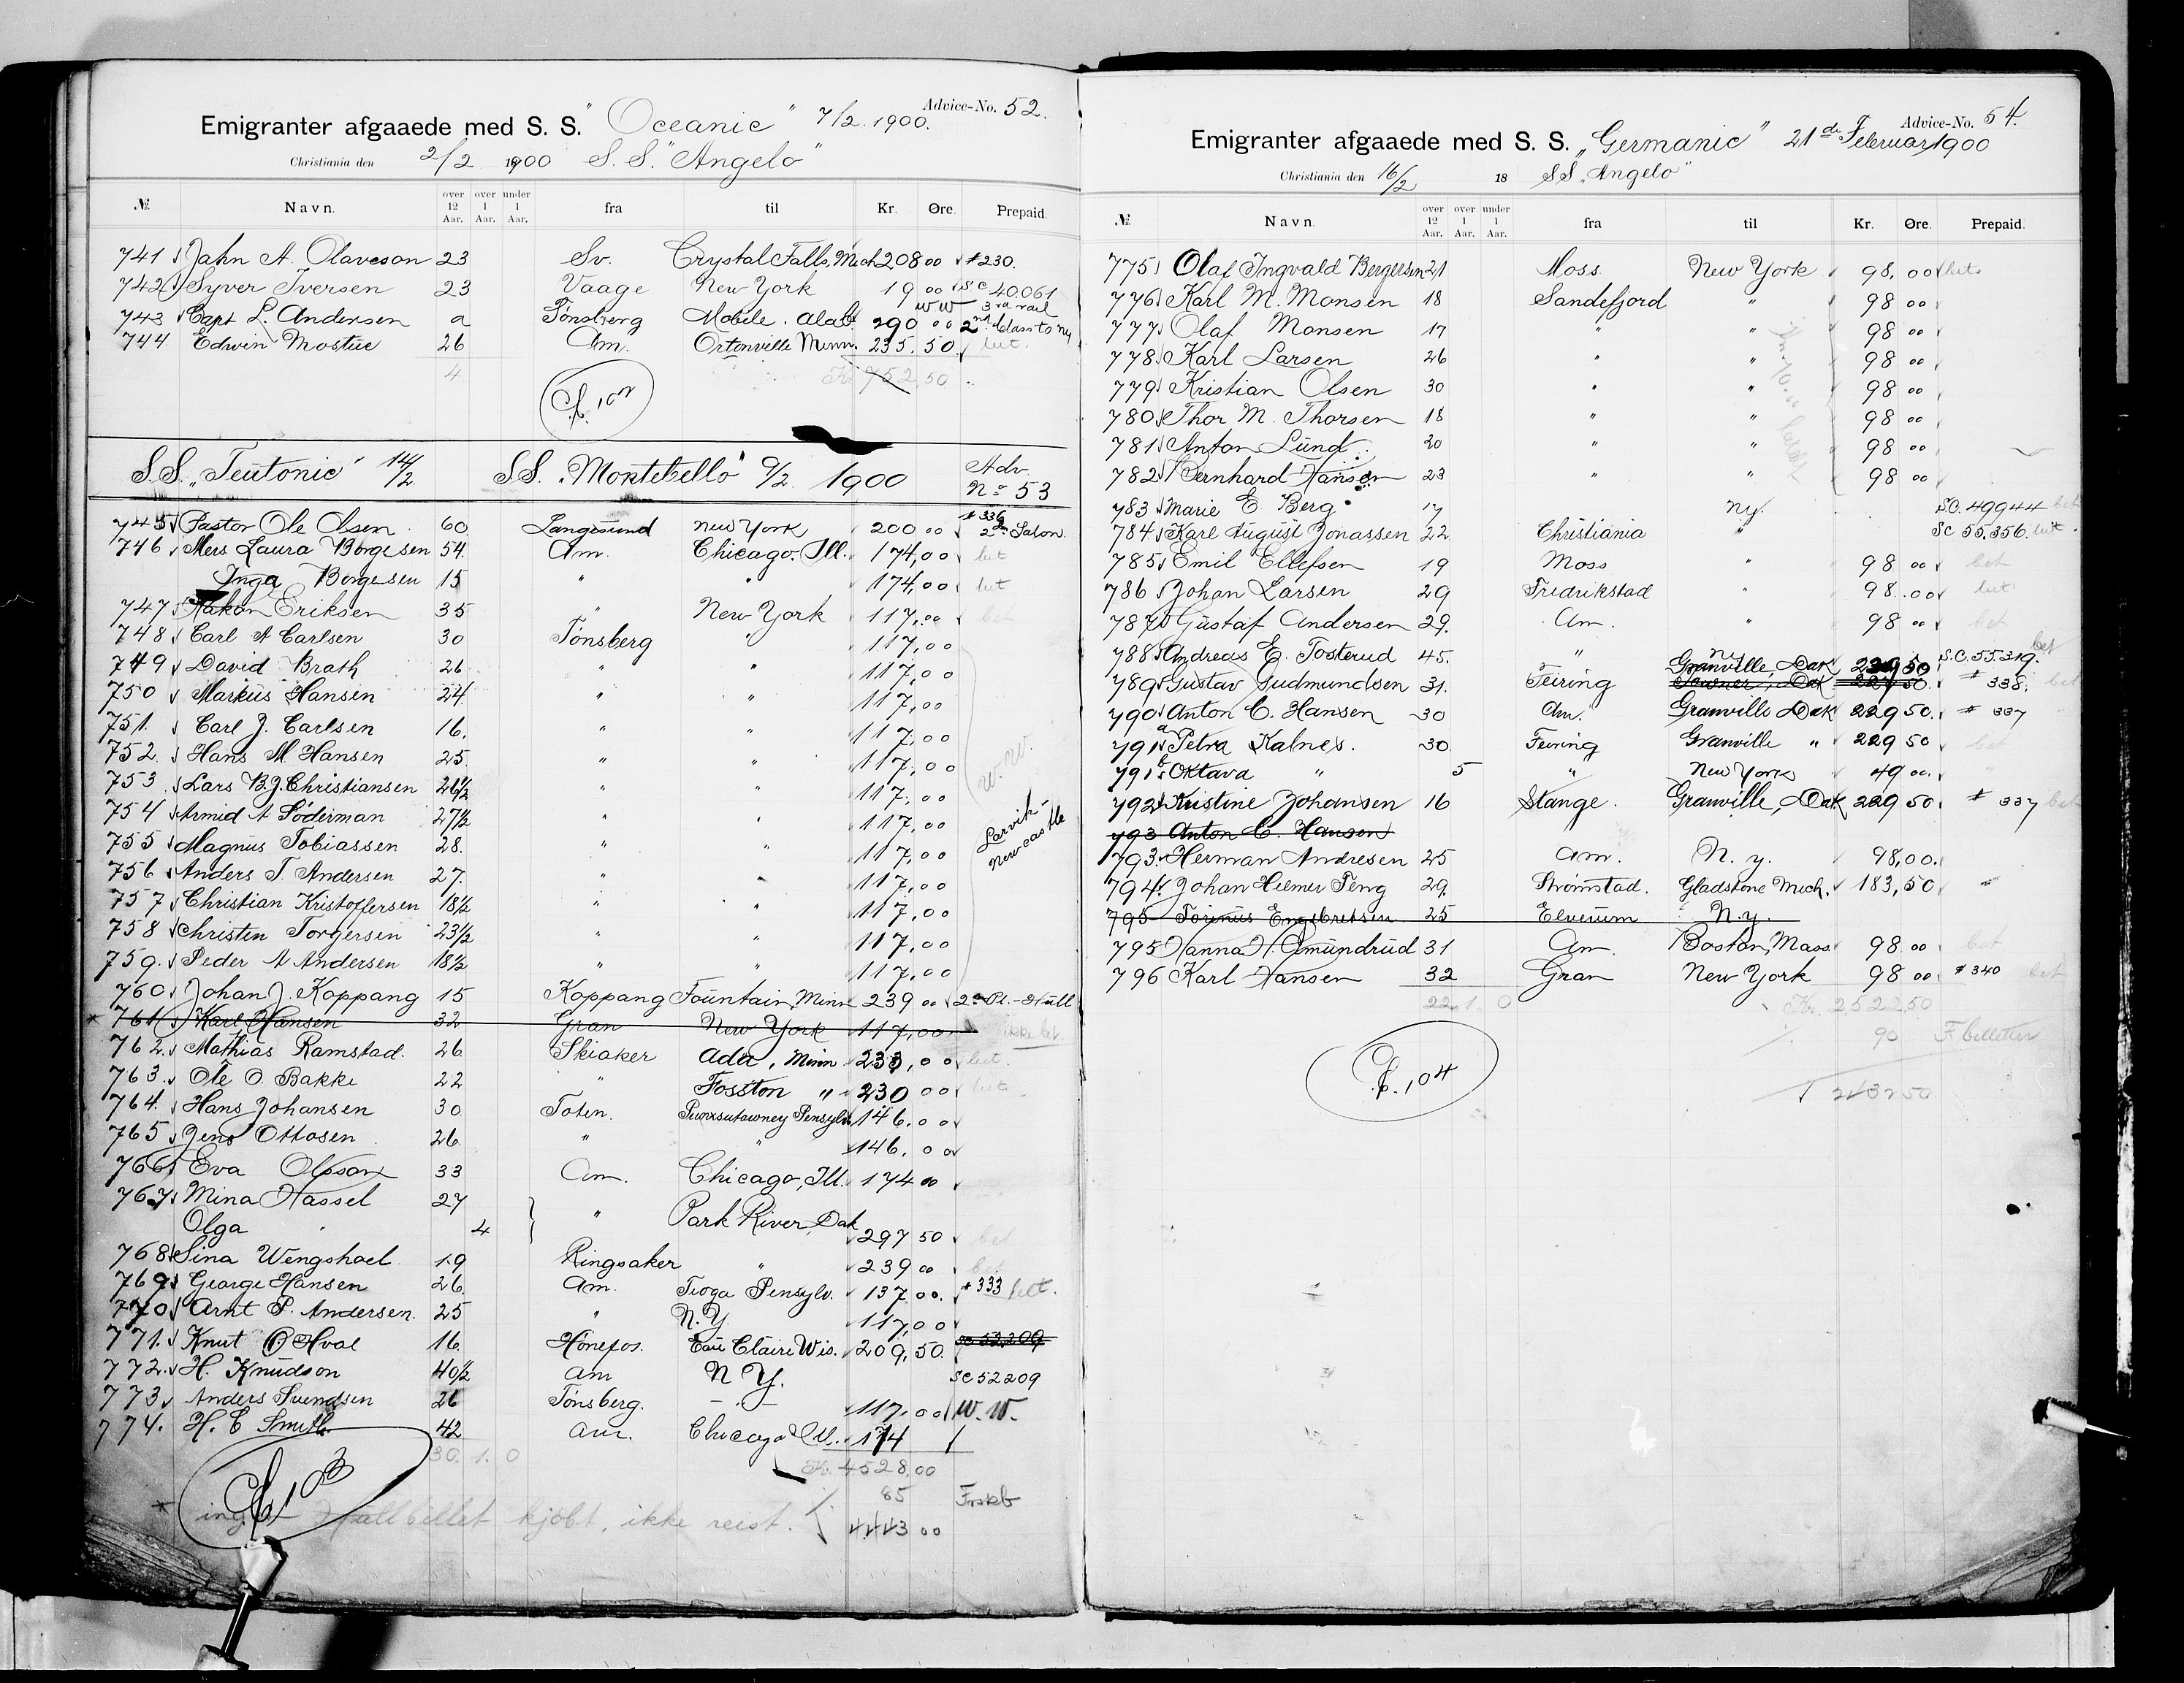 Advice-No. 52.
Emigranter afgaaede med S. S. "Oceanic" 7/2 1900.
Christiania den 2/2 1900 S.S. "Angelo"
№ Navn. over 12 Aar. over 1 Aar. under 1 Aar. fra til Kr. Øre. Prepaid.
741 John A. Olaveson 23 Sv. Crystal Falls, Mich 208 00 #230.
742 Syver Iversen 23 Vaage New York 19 00 sc 40.061
W W 3rd rail
743 Capt L. Andersen a Tønsberg Mobile. Alab. 290 00 2nd class to ny
744 Edwin Mostue 26 Am. Ortonville Minn. 235.50. bet.
4 Kr 752,50
S.S. "Teutonic" 14/2 S.S. "Montebello" 9/2 1900 Adv No 53
745 Pastor Ole Olsen 60 Langesund New York 200 00 #336 2n Salon.
746 Mrs Laura Borgesen 54. Am. Chicago. Ill. 174,00 bet
Inga Borgesen 15 " " 174,00 bet
747 Håkon Eriksen 35 " New York 117,00 bet
748 Carl A Carlsen 30 Tønsberg " 117,00
749 David Brath 26 " " 117,00
750 Markus Hansen 24 " " 117,00
751. Carl J. Carlsen 16. " " 117,00
752. Hans M Hansen 25. " " 117,00 W.W.
753 Lars B.J. Christiansen 26½ " " 117,00
754 Armid A Söderman 27½ " " 117,00 Larvik-
755 Magnus Tobiassen 28. " " 117,00 Newcastle
756 Anders T. Andersen 27. " " 117,00
757 Christian Kristoffersen 18½ " " 117,00
758 Christen Torgersen 23½ " " 117,00
759. Peder A Andersen 18½ " " 117,00
760 Johan J. Koppang 15 Koppang Fountain, Minn 239 00 2n Pl.-Hull
761 Karl Hansen 32 Gran New York 117,00 ikke bet.
762. Mathias Ramstad. 26 Skiaker Ada, Minn 233,00 bet.
763. Ole O. Bakke 22 " Fosston " 230 00 bet
764. Hans Johansen 30 Toten. Punxsutawney Pensylv. 146.00
765 Jens Ottosen 26. " " 146.00
766 Eva Olsson 33 Am. Chicago, Ill. 174 00
767 Mina Hassel 27 " Park River, Dak
Olga " 4 297 50 bet
768 Sina Wengshoel 19 Ringsaker " 239 00 bet
769 George Hansen 26. Am. Tioga Pensylv. 137 00. #333 bet.
770 Arnt P. Andersen. 25 " N.Y. 117,00
771. Knut O Hval 16. Hønefos. Eau Claire Wis. 209,50. sc 52209
772. H. Knudson 40½ Am N Y. sc 52209
773. Anders Svendsen 26 Tønsberg. -"- 117,00 W.W.
774. H. E Smith. 42 Am. Chicago Ill. 174
30. 1. 0 Kr. 4528,00
85 Frskb
Hullbillet kjøbt, ikke reist. 4443 00
Advice-No. 54.
Emigranter afgaaede med S. S. "Germanic" 21de Februar 1900
Christiania den 16/2 18 SS "Angelo"
№ Navn. over 12 Aar. over 1 Aar. under 1 Aar. fra til Kr. Øre. Prepaid.
775 Olaf Ingvald Bergersen 21 Moss New York 98,00 bet
776 Karl M. Monsen 18 Sandefjord " 98 00
777 Olaf Monsen 17 " " 98 00
778. Karl Larsen 26 " " 98 00
779 Kristian Olsen 30 " " 98 00
780 Thor M. Thorsen 18 " " 98 00
781 Anton Lund. 20 " " 98 00
782 Bernhard Hansen 23 " " 98 00
783 Marie E. Berg 17 ny. SC. 49944 bet
784 Karl August Jonassen 22 Christiania " SC 55.356. bet.
785 Emil Ellefsen 19 Moss " 98 00 bet
786 Johan Larsen 29 Fredrikstad " 98.00 bet
787 Gustaf Andersen 29. Am. " 98 00 bet
788 Andreas E. Tosterud 45. " ny S.C. 55.319. bet
789 Gustav Gudmundsen 31. Feiring Granville, Dak 229 50 #338. bet
790 Anton C. Hansen 30 Am. Granville Dak 229 50. # 337
791a Petra Kalnes. 30. Feiring Granville " 229 50 bet
791b Oktava " 5 " New York 49 00.
792 Kristine Johansen 16 Stange. Granville, Dak 229 50. # 337 bet
793 Anton C. Hansen
793. Herman Andresen 25 Am. N. y. 98,00.
794. Johan Helmer Teng 29. Strømstad. Gladstone Mich. 183,50
795 Torinus Engebretsen 25 Elverum N.y.
795 Hanna H. Amundrud 31 Am. Boston, Mass 98 00 bet
796 Karl Hansen 32 Gran New York 98 00 #340 bet
22. 1. 0 Kr. 2522,50
90 F billetter
2432 50